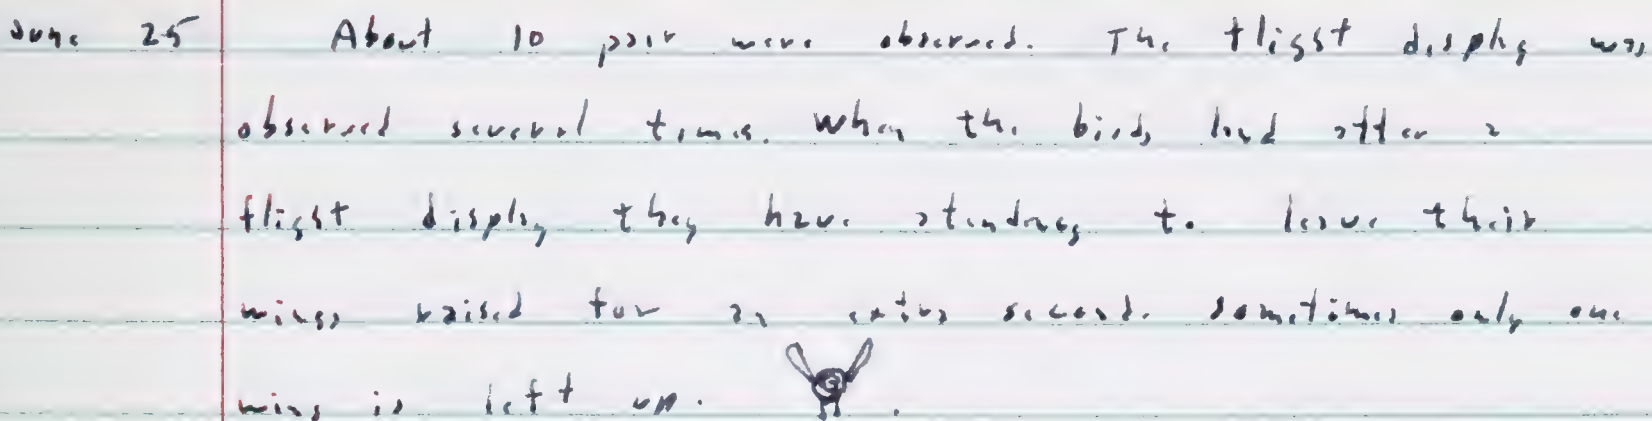 June 25 About 10 pair were observed. The flight display was
observed several times. When the birds land after a
flight display they have a tendency to leave their
wings raised for an extra second. Sometimes only one
wing is left up.